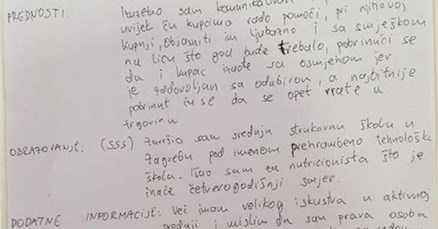 PREDNOSTI: Izuzetno sam komunikativan
uvijek ću kupcima rado pomoći, pri njihovoj
kupnji, Objasniti im ljubazno i sa smješkom
na licu što god bude trebalo, pobrinuti se
da i kupac izađe sa osmjehom jer
je zadovoljan sa odabirom, a najbitnije
pobrinut ću se da se opet vrate u
trgovinu
OBRAZOVANJE: (SSS) Završio sam srednju strukovnu školu u
Zagrebu pod imenom prehrambeno tehnološka
škola. Išao sam za nutricionista što je
inače četverogodišnji smjer.
DODATNE INFORMACIJE: Već imam velikog iskustva u aktivnoj
prodaji i mislim da sam prava osoba